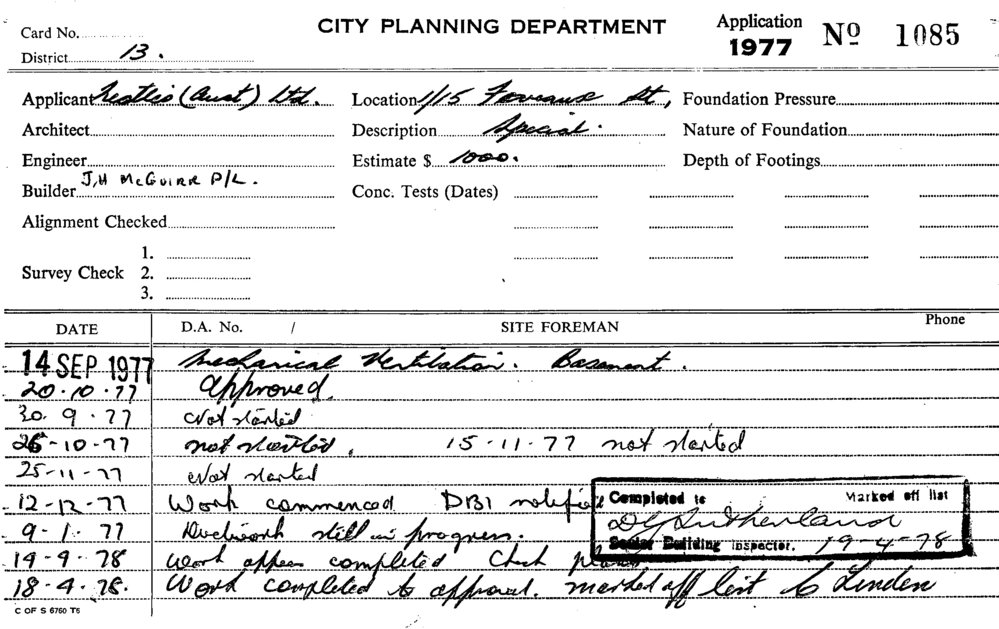 Card No. CITY PLANNING DEPARTMENT Application 1977 Nº 1085
District 13.
Applicant Nestles (Aust) Ltd. Location 1/15 Foveaux St, Foundation Pressure
Architect Description Special. Nature of Foundation
Engineer Estimate $ 1000. Depth of Footings
Builder J,H McGuirk P/L. Conc. Tests (Dates)
Alignment Checked
Survey Check 1.
2.
3.
DATE D.A. No. / SITE FOREMAN Phone
14 SEP 1977 Mechanical Ventilation. Basement.
20.10.77 Approved.
30.9.77 Not started
26-10-77 not started. 15-11-77 not started
25-11-77 Not started
12-12-77 Work commenced DBI notified
9-1-77 Ductwork still in progress.
14-4-78 Work appears completed Check plans
18-4-78. Work completed to approval. marked off list C Linden
Completed to Marked off list
D G Sutherland
Senior Building Inspector. 19-4-78
C OF S 6760 T5